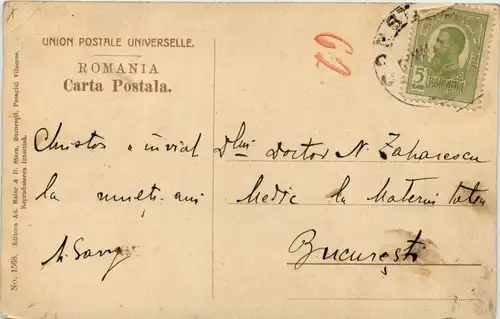 UNION POSTALE UNIVERSELLE.
ROMANIA
Carta Postala.
CONST
5
ROMANIA
Christos a înviat
la mulți ani
Dlui Doctor N. Zaharescu
Medic la Maternitatea
București
No. 1568. Editura Ad. Maier & D. Stern, București, Pasagiul Villacros.
Reproducerea interzisă.